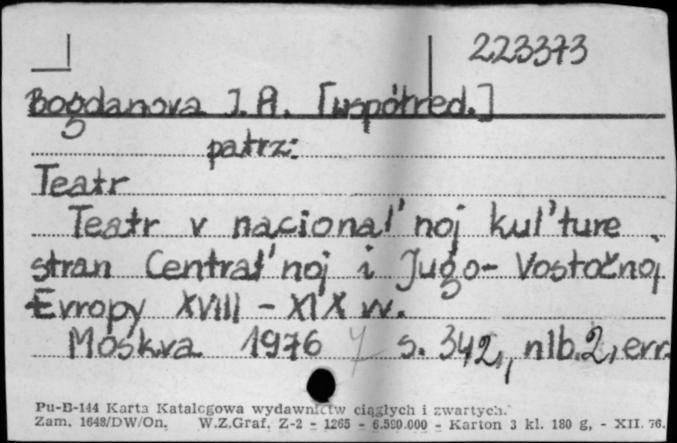 223373
Bogdanova I. A. [współred.]
patrz:
Teatr
Teatr v nacional'noj kul'ture
stran Central'noj i Jugo-Vostočnoj
Evropy XVIII - XIX vv.
Moskva 1976 s. 342, nlb. 2, err.
Pu-B-144 Karta Katalogowa wydawnictw ciągłych i zwartych.
Zam. 1648/DW/On. W.Z.Graf. Z-2 - 1265 - 6.500.000 - Karton 3 kl. 180 g, - XII. 76.